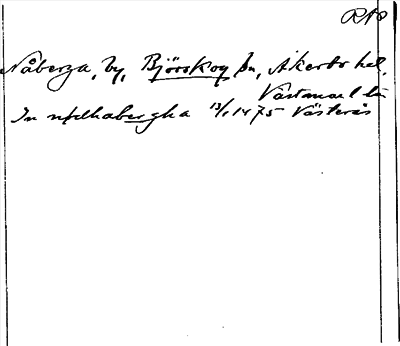 RAp
Nåberga, by, Björskog sn, Åkerbo hd,
Västmanl. län
In nydhabergha 13/1 1475 Västerås